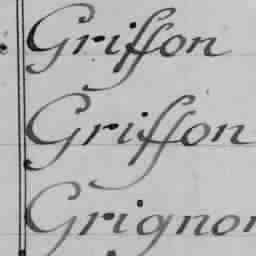 Griffon
Griffon
Grignon